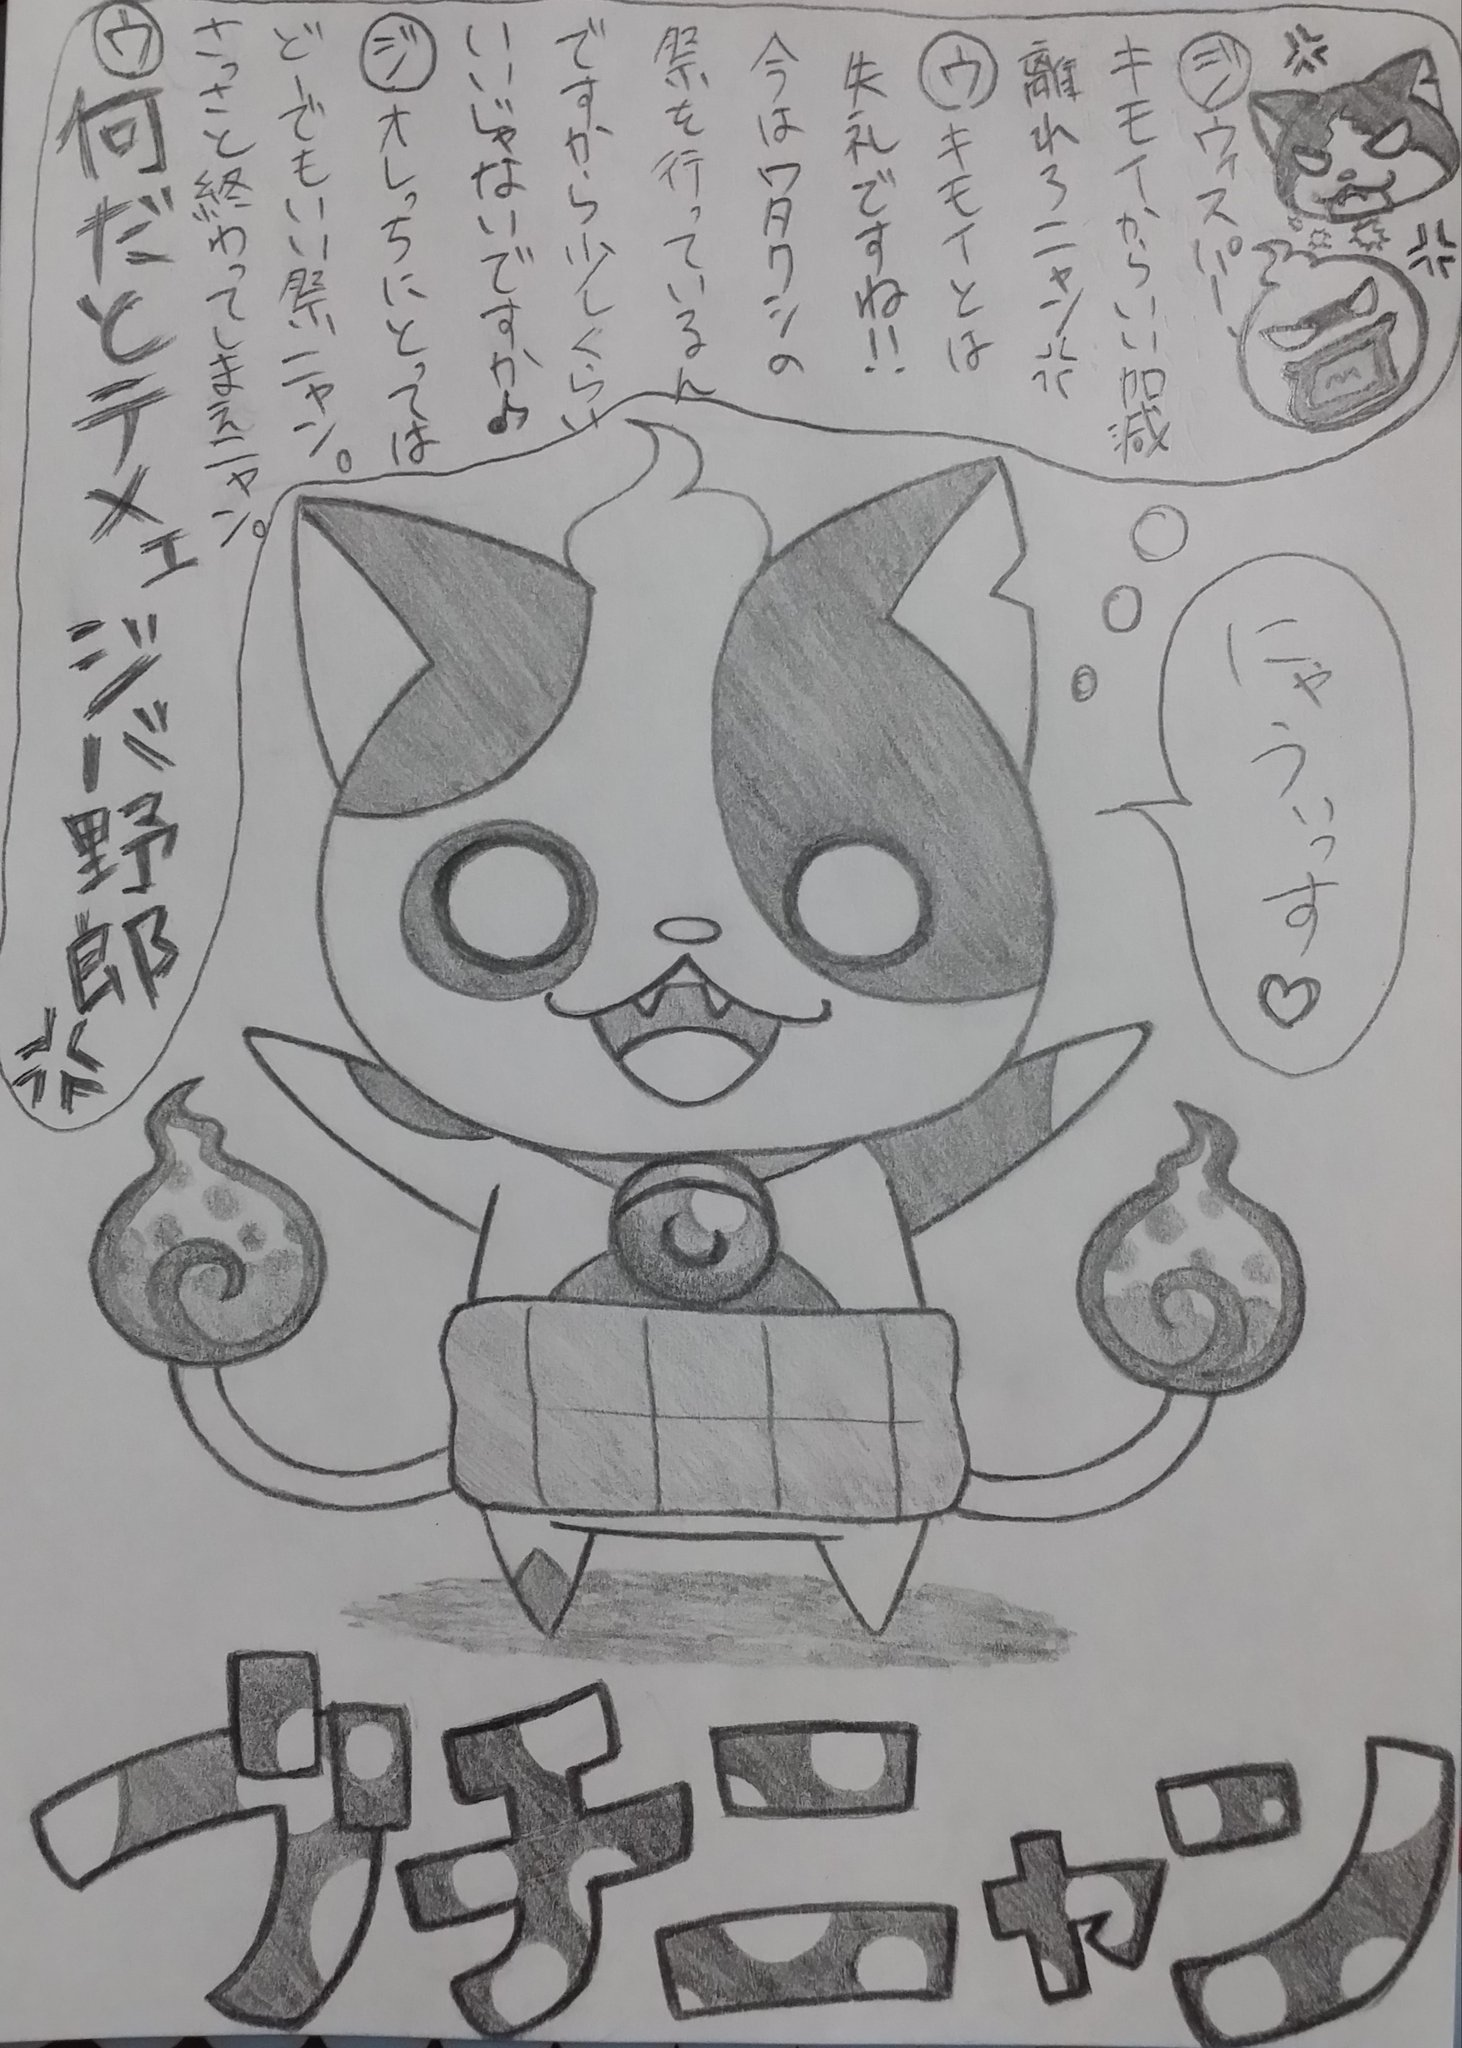 ㋛゙ウィスパー、
キモイからいい加減
離れろニャン
㋒キモイとは
失礼ですね!!
今はワタクシの
祭を行っているん
ですから少しくらい
いいじゃないですか♪
㋛゙オレっちにとっては
どーでもいい祭ニャン。
さっさと終わってしまえニャン。
㋒何だとテメェジバ野郎
にゃういっす♡
ブチニャン